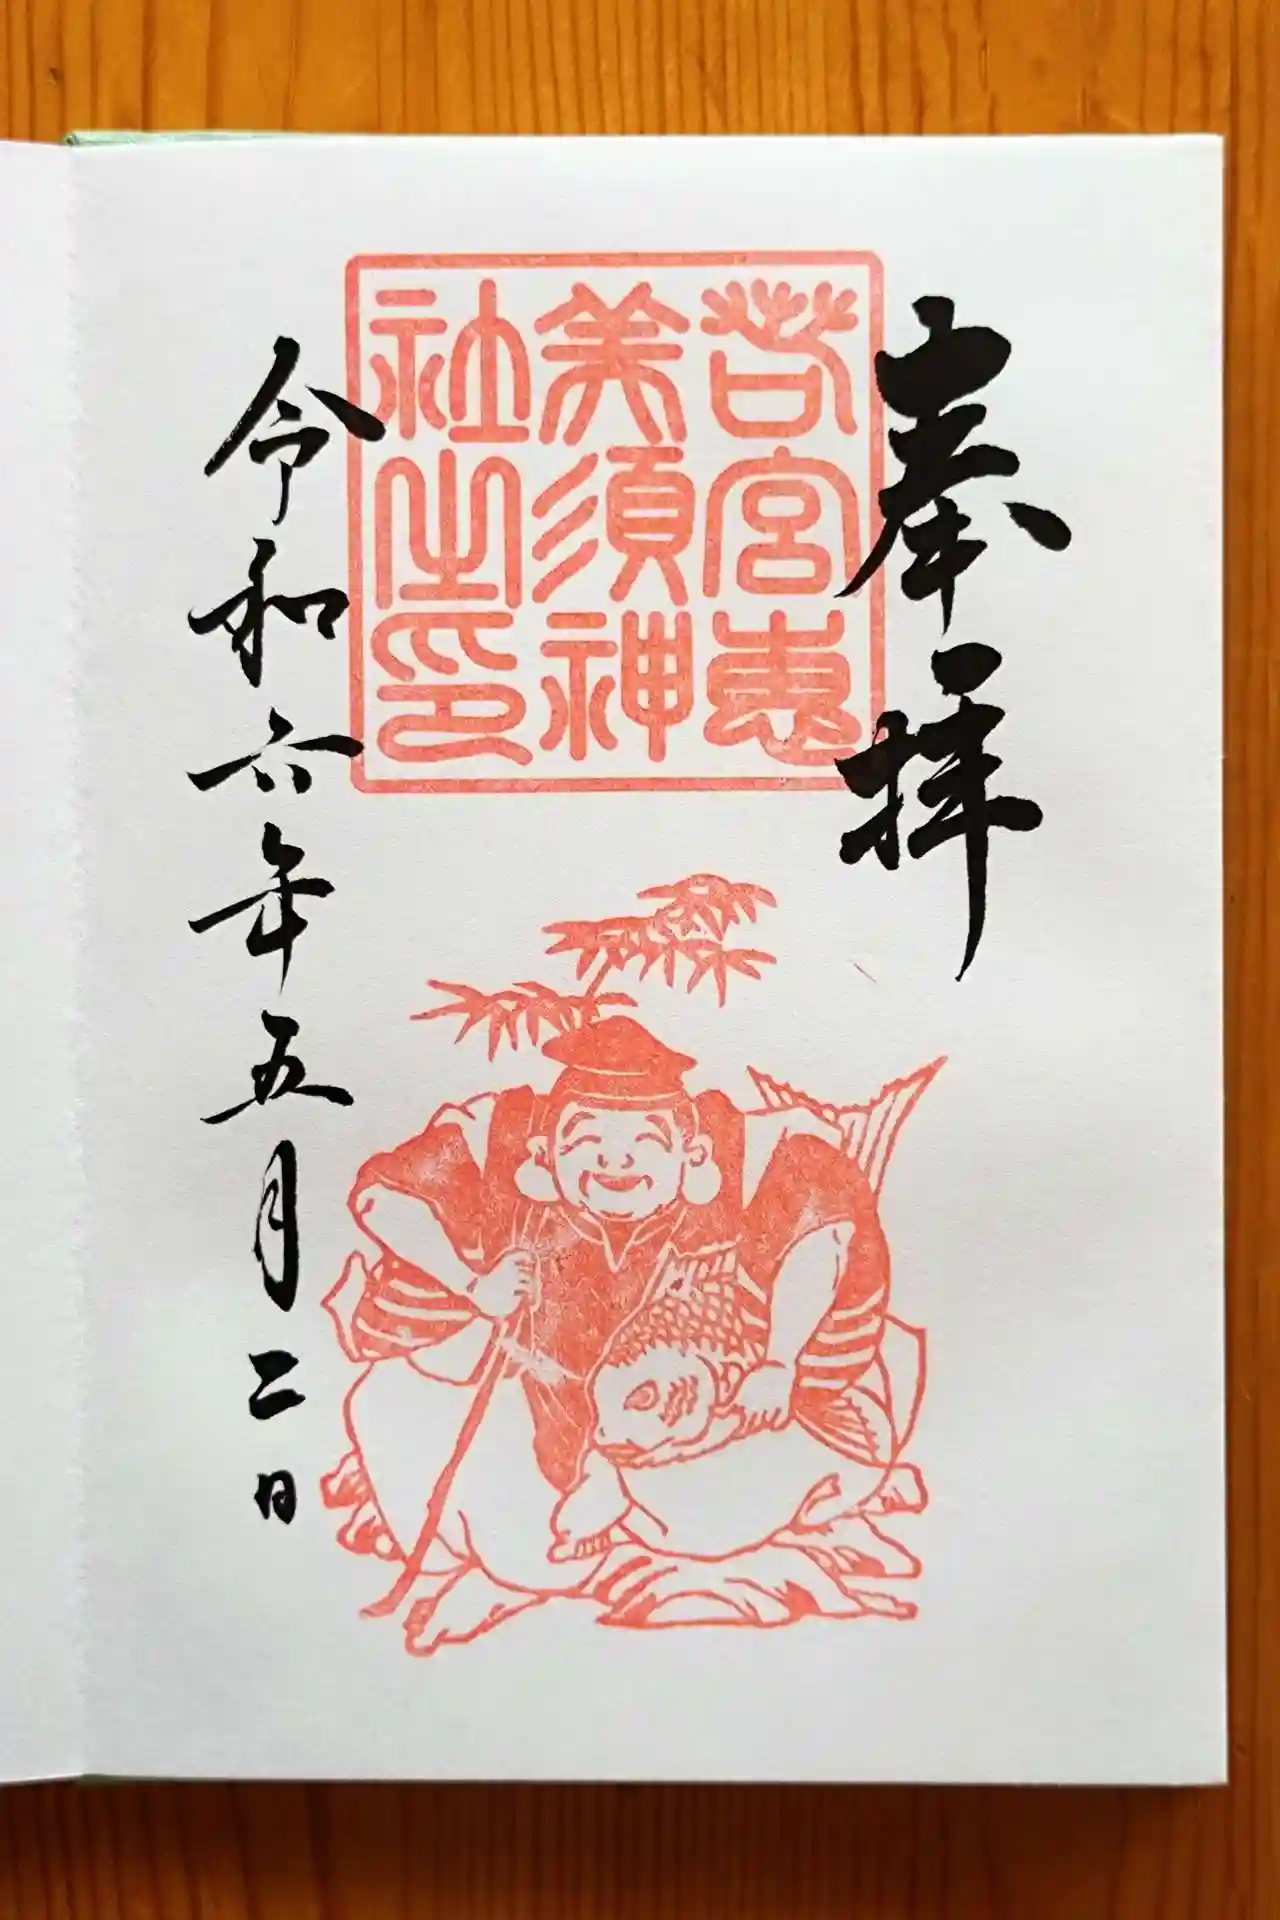 奉拝
若宮恵
美須神
社之印
令和六年五月二日